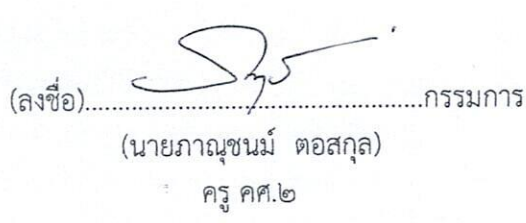 (ลงชื่อ)..................................................กรรมการ
(นายภาณุชนม์ ตอสกุล)
ครู คศ.๒